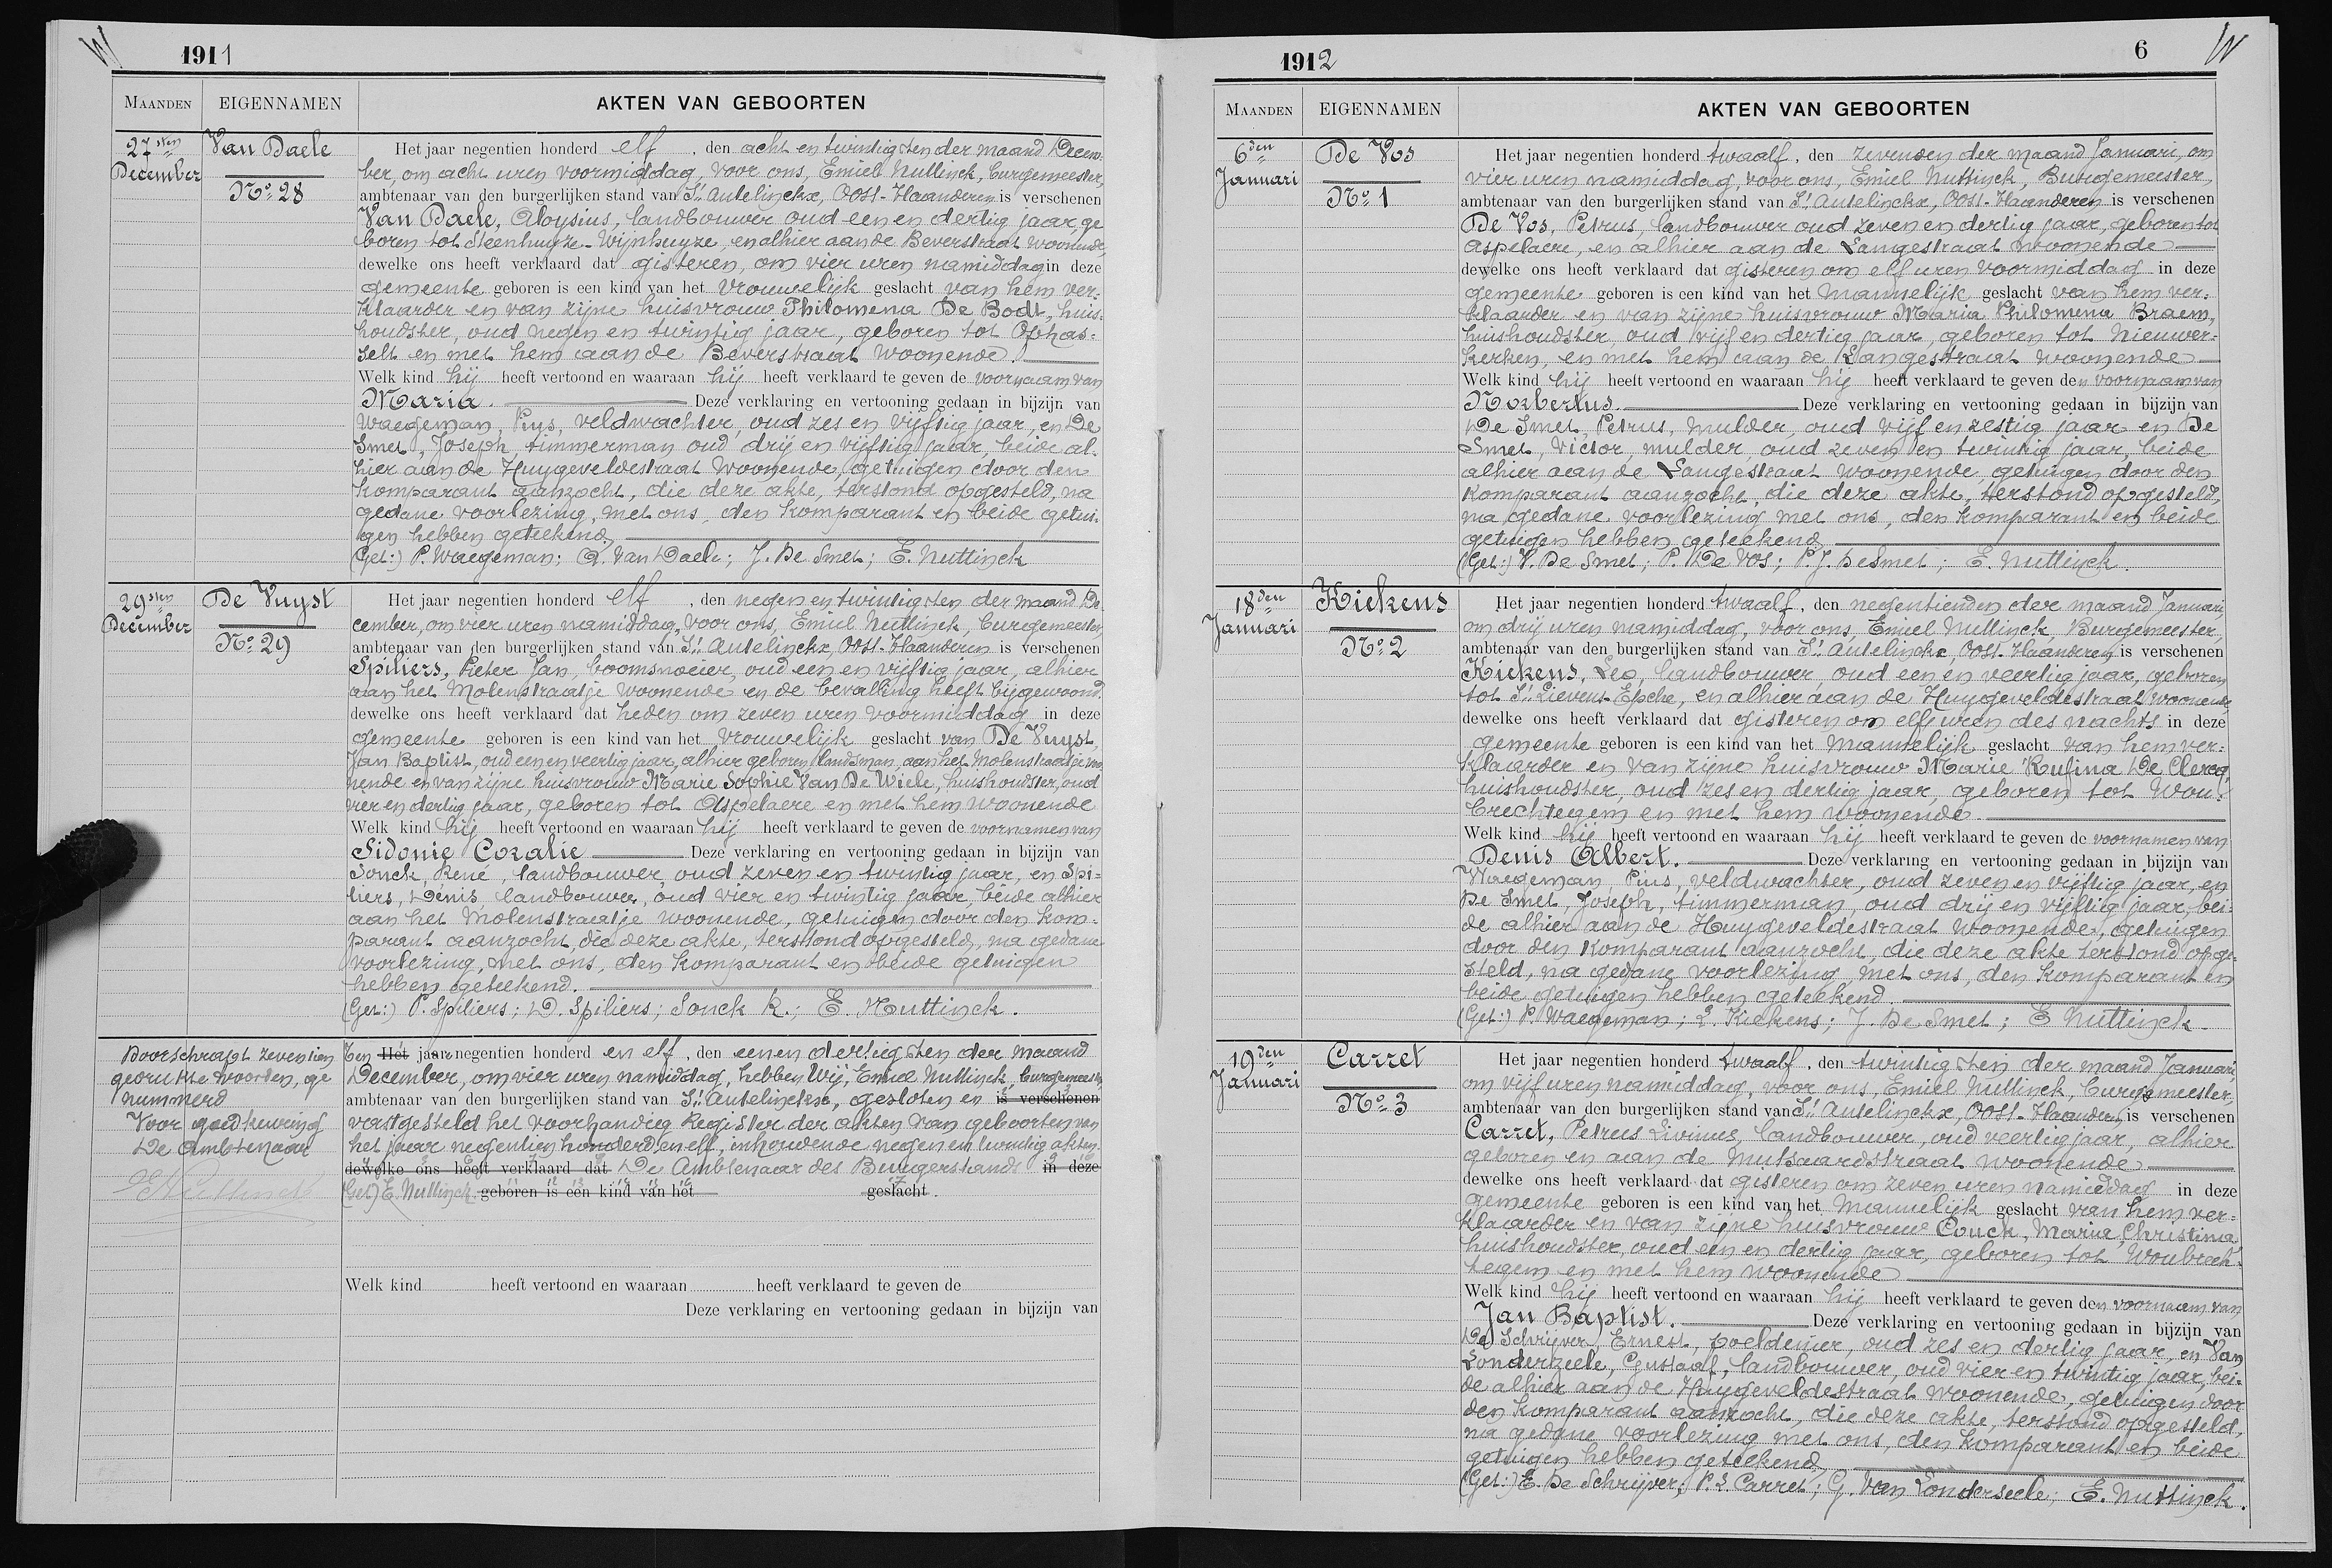 1911
MAANDEN EIGENNAMEN AKTEN VAN GEBOORTEN
27sten
December
Van Daele
No 28
Het jaar negentien honderd elf, den acht en twintigsten der maand Decem-
ber, om acht uren voormiddag, voor ons, Emiel Nuttinck, burgemeester,
ambtenaar van den burgerlijken stand van St Antelinckx, Oost-Vlaanderen is verschenen
Van Daele, Aloysius, landbouwer oud een en dertig jaar, ge
boren tot Steenhuyze-Wijnhuyze, en alhier aan de Beverstraat woonende,
dewelke ons heeft verklaard dat gisteren, om vier uren namiddag in deze
gemeente geboren is een kind van het vrouwelijk geslacht van hem ver-
klaarder en van zijne huisvrouw Philomena De Bodt, huis-
houdster, oud negen en twintig jaar, geboren tot Ophas-
selt en met hem aan de Beverstraat woonende.
Welk kind hij heeft vertoond en waaraan hij heeft verklaard te geven de voornaam van
Maria. Deze verklaring en vertooning gedaan in bijzijn van
Waegeman, Pius, veldwachter, oud zes en vijftig jaar, en De
Smet, Joseph, timmerman oud drij en vijftig jaar, beide al-
hier aan de Huygeveldestraat woonende, getuigen door den
komparant aanzocht, die deze akte, terstond opgesteld, na
gedane voorlezing, met ons, den komparant en beide getui-
gen hebben geteekend.
(Get:) P. Waegeman; A. Van Daele; J. De Smet; E. Nuttinck
29sten
December
De Vuyst
No 29
Het jaar negentien honderd elf, den negen en twintigsten der maand De
cember, om vier uren namiddag, voor ons, Emiel Nuttinck, burgemeester,
ambtenaar van den burgerlijken stand van St Antelinckx, Oost-Vlaanderen is verschenen
Spiliers, Pieter Jan, boomsnoeier, oud een en vijftig jaar, alhier
aan het Molenstraatje woonende en de bevalling heeft bijgewoond.
dewelke ons heeft verklaard dat heden om zeven uren voormiddag in deze
gemeente geboren is een kind van het vrouwelijk geslacht van De Vuyst,
Jan Baptist, oud een en veertig jaar, alhier geboren, landsman, aan het Molenstraatje woo
nende en van zijne huisvrouw Marie Sophie Van De Wiele, huishoudster, oud
vier en dertig jaar, geboren tot Aspelaere en met hem woonende
Welk kind hij heeft vertoond en waaraan hij heeft verklaard te geven de voornamen van
Sidonie Coralie Deze verklaring en vertooning gedaan in bijzijn van
Sonck, René, landbouwer, oud zeven en twintig jaar, en Spi-
liers, Denis, landbouwer, oud vier en twintig jaar, beide alhier
aan het Molenstraatje woonende, getuigen door den kom-
parant aanzocht, die deze akte, terstond opgesteld, na gedane
voorlezing, met ons, den komparant en beide getuigen
hebben geteekend.
(Get:) P. Spiliers; D. Spiliers; Sonck R.; E. Nuttinck.
Doorschrapt zeventien
gedrukte woorden, ge
nummerd
Voor goedkeuring
De Ambtenaar
E Nuttinck
Ten Het jaar negentien honderd en elf, den eenen dertigsten der maand
December, om vier uren namiddag, hebben Wij, Emiel Nuttinck, burgemeester
ambtenaar van den burgerlijken stand van St Antelinckx, gesloten en is verschenen
vastgesteld het voorhandig Register der akten van geboorten van
het jaar negentien honderd en elf, inhoudende negen en twintig akten.
dewelke ons heeft verklaard dat De Ambtenaar des Burgerstands in deze
(Get) E. Nuttinck geboren is een kind van het geslacht.
Welk kind heeft vertoond en waaraan heeft verklaard te geven de
Deze verklaring en vertooning gedaan in bijzijn van
1912
6
MAANDEN EIGENNAMEN AKTEN VAN GEBOORTEN
6den
Januari
De Vos
No 1
Het jaar negentien honderd twaalf, den zevenden der maand Januari, om
vier uren namiddag, voor ons, Emiel Nuttinck, Burgemeester,
ambtenaar van den burgerlijken stand van St Antelinckx, Oost-Vlaanderen is verschenen
De Vos, Petrus, landbouwer oud zeven en dertig jaar, geboren tot
Aspelaere, en alhier aan de Langestraat woonende
dewelke ons heeft verklaard dat gisteren om elf uren voormiddag in deze
gemeente geboren is een kind van het mannelijk geslacht van hem ver-
klaarder en van zijne huisvrouw Maria Philomena Braem,
huishoudster, oud vijf en dertig jaar, geboren tot Nieuwer-
kerken, en met hem aan de Langestraat woonende
Welk kind hij heeft vertoond en waaraan hij heeft verklaard te geven den voornaam van
Norbertus. Deze verklaring en vertooning gedaan in bijzijn van
De Smet, Petrus, mulder, oud vijf en zestig jaar en De
Smet, Victor, mulder, oud zeven en twintig jaar, beide
alhier aan de Langestraat woonende, getuigen door den
komparant aanzocht, die deze akte, terstond opgesteld,
na gedane voorlezing met ons, den komparant en beide
getuigen hebben geteekend
(Get:) V. De Smet; P. De Vos; P. J. DeSmet; E. Nuttinck.
18den
Januari
Kiekens
No 2
Het jaar negentien honderd twaalf, den negentienden der maand Januari,
om drij uren namiddag, voor ons, Emiel Nuttinck, Burgemeester,
ambtenaar van den burgerlijken stand van St Antelinckx, Oost-Vlaanderen is verschenen
Kiekens, Leo, landbouwer, oud een en veertig jaar, geboren
tot St Lievens-Essche, en alhier aan de Huygeveldestraat woonende,
dewelke ons heeft verklaard dat gisteren om elf uren des nachts in deze
gemeente geboren is een kind van het mannelijk geslacht van hem ver-
klaarder en van zijne huisvrouw Marie Rufina De Clercq,
huishoudster, oud zes en dertig jaar, geboren tot Wou-
brechtegem en met hem woonende.
Welk kind hij heeft vertoond en waaraan hij heeft verklaard te geven de voornamen van
Denis Albert. Deze verklaring en vertooning gedaan in bijzijn van
Waegeman, Pius, veldwachter, oud zeven en vijftig jaar, en
De Smet, Joseph, timmerman, oud drij en vijftig jaar, bei-
de alhier aan de Huygeveldestraat woonende, getuigen
door den komparant aanzocht, die deze akte terstond opge-
steld, na gedane voorlezing, met ons, den komparant en
beide getuigen hebben geteekend.
(Get:) P. Waegeman; L. Kiekens; J. De Smet; E Nuttinck.
19den
Januari
Carret
No 3
Het jaar negentien honderd twaalf, den twintigsten der maand Januari,
om vijf uren namiddag, voor ons, Emiel Nuttinck, burgemeester,
ambtenaar van den burgerlijken stand van St Antelinckx, Oost-Vlaanderen is verschenen
Carret, Petrus Livinus, landbouwer, oud veertig jaar, alhier
geboren en aan de Mutsaardstraat woonende
dewelke ons heeft verklaard dat gisteren om zeven uren namiddag in deze
gemeente geboren is een kind van het mannelijk geslacht van hem ver-
klaarder en van zijne huisvrouw Couck, Maria Christina
huishoudster, oud een en dertig jaar, geboren tot Woubrech-
tegem en met hem woonende
Welk kind hij heeft vertoond en waaraan hij heeft verklaard te geven den voornaam van
Jan Baptist. Deze verklaring en vertooning gedaan in bijzijn van
De Schrijver, Ernest, poeldenier, oud zes en dertig jaar, en Van
Londerzeele, Gustaaf, landbouwer, oud vier en twintig jaar, bei-
de alhier aan de Huygeveldestraat woonende, getuigen door
den komparant aanzocht, die deze akte, terstond opgesteld,
na gedane voorlezing met ons, den komparant en beide
getuigen hebben geteekend
(Get:) E. De Schrijver; P. L. Carret; G. Van Londerseele; E. Nuttinck.